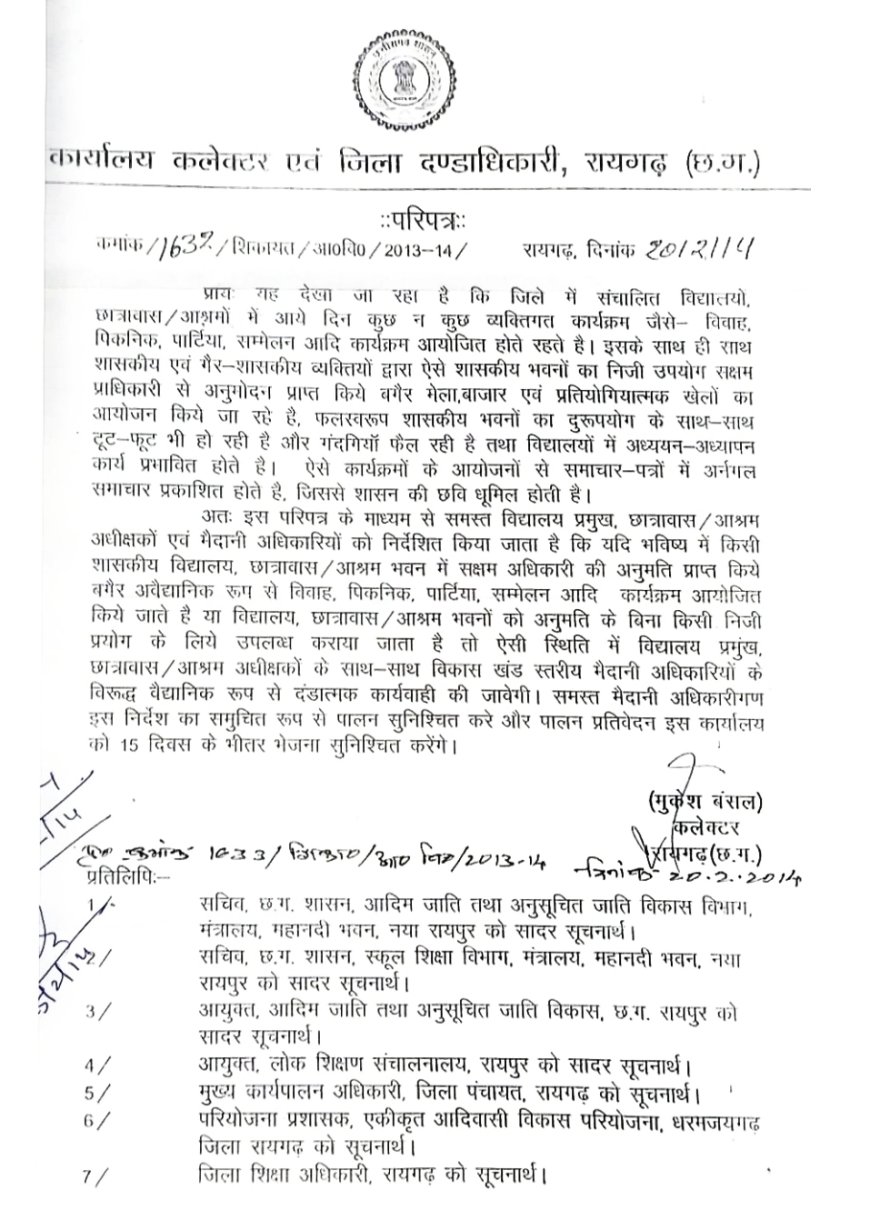 छत्तीसगढ़ शासन
कार्यालय कलेक्टर एवं जिला दण्डाधिकारी, रायगढ़ (छ.ग.)
::परिपत्र::
कमांक/1632/शिकायत/आ0वि0/2013-14/ रायगढ़, दिनांक 20/2/14
प्रायः यह देखा जा रहा है कि जिले में संचालित विद्यालयो,
छात्रावास/आश्रमों में आये दिन कुछ न कुछ व्यक्तिगत कार्यक्रम जैसे– विवाह,
पिकनिक, पार्टिया, सम्मेलन आदि कार्यक्रम आयोजित होते रहते है। इसके साथ ही साथ
शासकीय एवं गैर–शासकीय व्यक्तियों द्वारा ऐसे शासकीय भवनों का निजी उपयोग सक्षम
प्राधिकारी से अनुमोदन प्राप्त किये बगैर मेला,बाजार एवं प्रतियोगियात्मक खेलों का
आयोजन किये जा रहे है, फलस्वरूप शासकीय भवनों का दुरूपयोग के साथ–साथ
टूट–फूट भी हो रही है और गंदगियॉ फैल रही है तथा विद्यालयों में अध्ययन–अध्यापन
कार्य प्रभावित होते है। ऐसे कार्यक्रमों के आयोजनों से समाचार–पत्रों में अर्नगल
समाचार प्रकाशित होते है, जिससे शासन की छवि धूमिल होती है।
अतः इस परिपत्र के माध्यम से समस्त विद्यालय प्रमुख, छात्रावास/आश्रम
अधीक्षकों एवं मैदानी अधिकारियों को निर्देशित किया जाता है कि यदि भविष्य में किसी
शासकीय विद्यालय, छात्रावास/आश्रम भवन में सक्षम अधिकारी की अनुमति प्राप्त किये
बगैर अवैद्यानिक रूप से विवाह, पिकनिक, पार्टिया, सम्मेलन आदि कार्यक्रम आयोजित
किये जाते है या विद्यालय, छात्रावास/आश्रम भवनों को अनुमति के बिना किसी निजी
प्रयोग के लिये उपलब्ध कराया जाता है तो ऐसी स्थिति में विद्यालय प्रमुंख,
छात्रावास/आश्रम अधीक्षकों के साथ–साथ विकास खंड स्तरीय मैदानी अधिकारियों के
विरूद्ध वैद्यानिक रूप से दंडात्मक कार्यवाही की जावेगी। समस्त मैदानी अधिकारीगण
इस निर्देश का समुचित रूप से पालन सुनिश्चित करे और पालन प्रतिवेदन इस कार्यालय
को 15 दिवस के भीतर भेजना सुनिश्चित करेंगे।
(मुकेश बंसल)
कलेक्टर
रायगढ़(छ.ग.)
पृ0 क्रमांक 1633/शिकायत/आ0 वि0/2013-14 दिनांक 20.2.2014
प्रतिलिपिः–
1/ सचिव, छ.ग. शासन, आदिम जाति तथा अनुसूचित जाति विकास विभाग,
मंत्रालय, महानदी भवन, नया रायपुर को सादर सूचनार्थ।
2/ सचिव, छ.ग. शासन, स्कूल शिक्षा विभाग, मंत्रालय, महानदी भवन, नया
रायपुर को सादर सूचनार्थ।
3/ आयुक्त, आदिम जाति तथा अनुसूचित जाति विकास, छ.ग. रायपुर को
सादर सूचनार्थ।
4/ आयुक्त, लोक शिक्षण संचालनालय, रायपुर को सादर सूचनार्थ।
5/ मुख्य कार्यपालन अधिकारी, जिला पंचायत, रायगढ़ को सूचनार्थ।
6/ परियोजना प्रशासक, एकीकृत आदिवासी विकास परियोजना, धरमजयगढ़
जिला रायगढ़ को सूचनार्थ।
7/ जिला शिक्षा अधिकारी, रायगढ़ को सूचनार्थ।